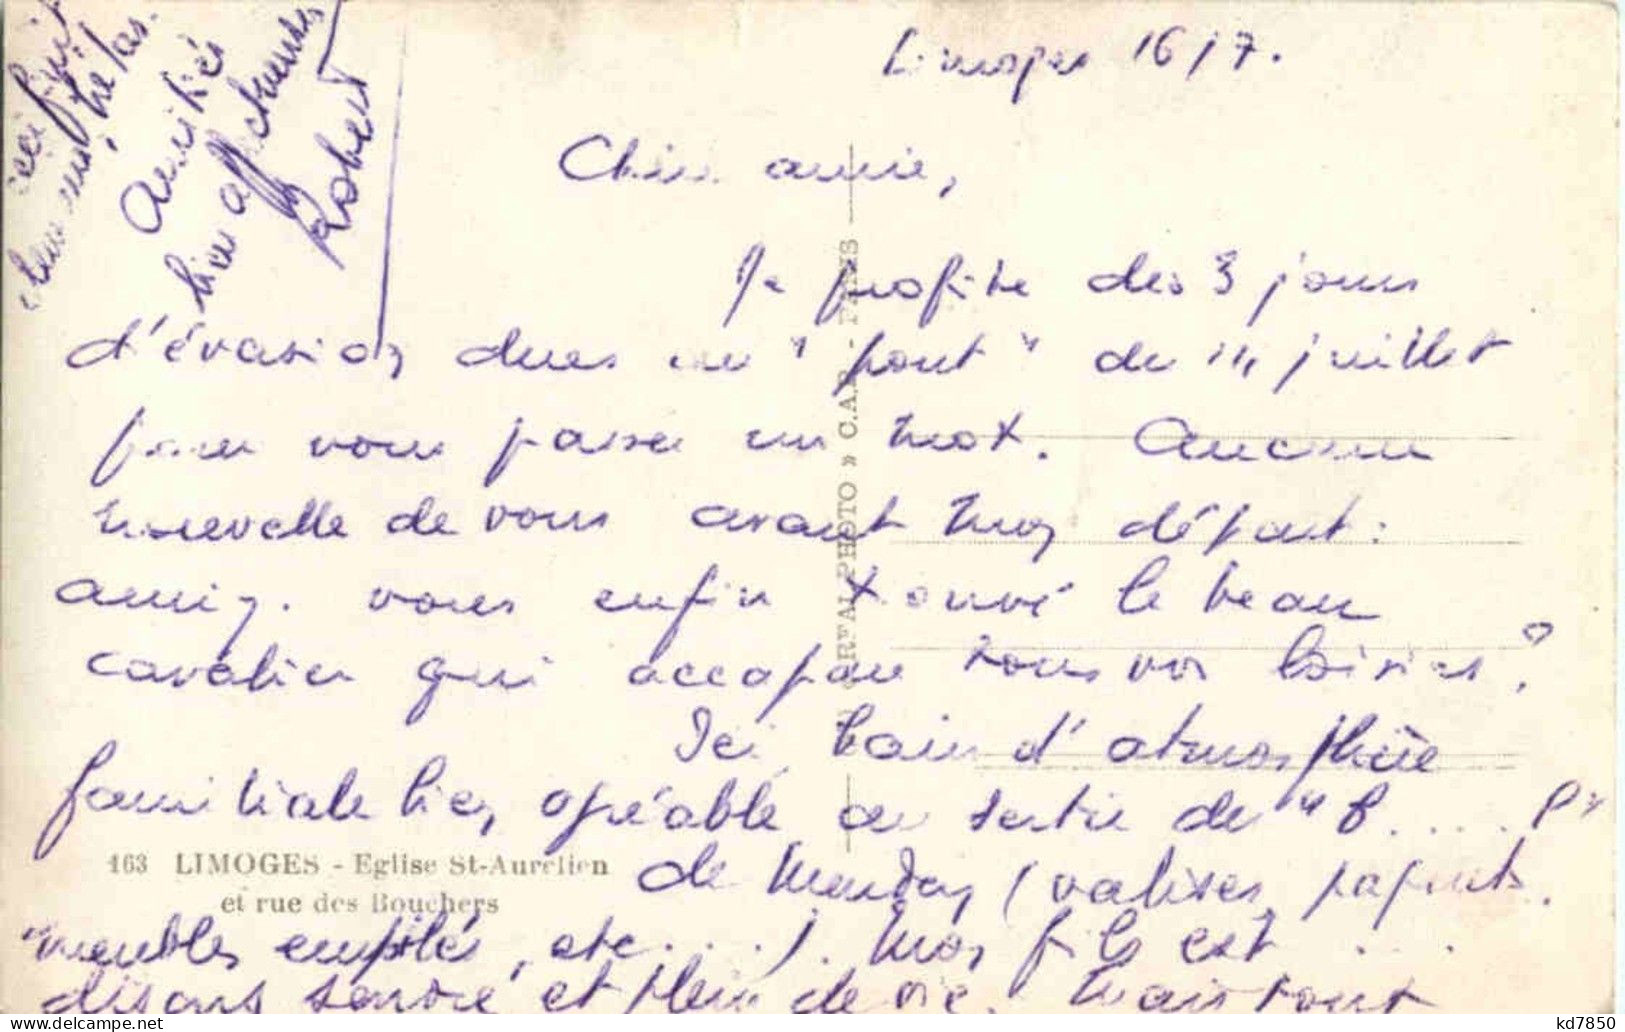 Limoges 16/7.
Chère amie,
Je profite des 3 jours
d'évasion dues au "pont" du 14 juillet
pour vous passer un mot. Aucune
nouvelle de vous avant mon départ :
vous enfin trouvé le beau
cavalier qui accapare tous vos loisirs ?
Ici, bain d'atmosphère
familiale bien agréable au sortir de "B..... P"
de Meudon (valises, paquets,
meubles empilés, etc...). Mon fils est ...
disons sensé et plein de vie. Mais tout
ceci finit
hélas.
Amitiés
bien affectueuses
Robert
163 LIMOGES - Eglise St-Aurélien
et rue des Bouchers
PHOTO » C.A.P. - PARIS
kd7850